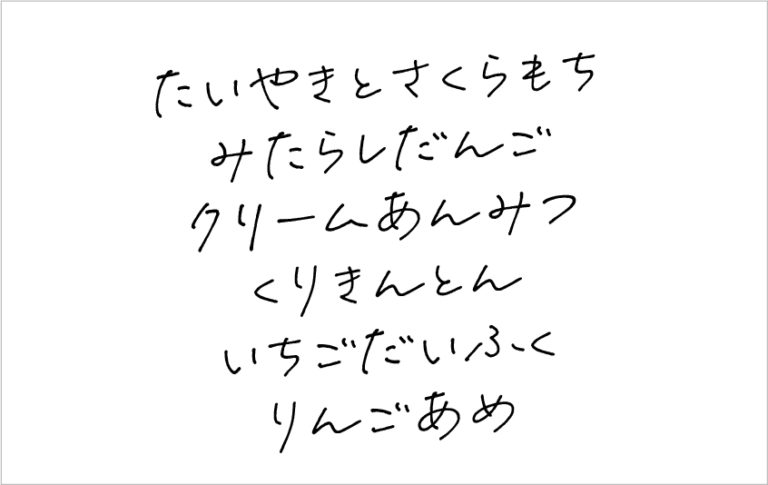 たいやきとさくらもち
みたらしだんご
クリームあんみつ
くりきんとん
いちごだいふく
りんごあめ